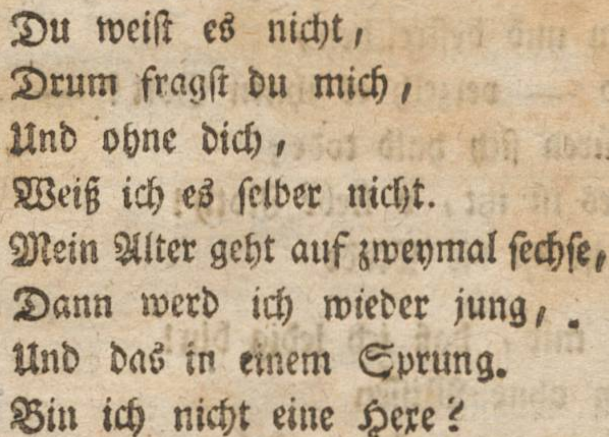 Du weist es nicht,
Drum fragst du mich,
Und ohne dich,
Weiß ich es selber nicht.
Mein Alter geht auf zweymal sechse,
Dann werd ich wieder jung,
Und das in einem Sprung.
Bin ich nicht eine Hexe?